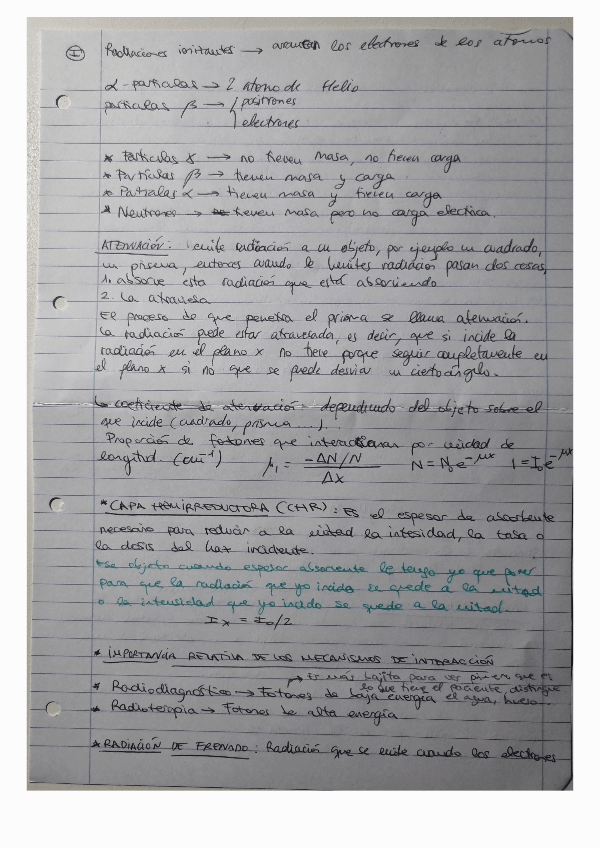 I Radiaciones ionitantes → arrancan los electrones de los átomos
α-partículas → 2 átomo de Helio
partículas β → positrones
electrones
* Partículas γ → no tienen masa, no tienen carga
* Partículas β → tienen masa y carga.
* Partículas α → tienen masa y tienen carga
* Neutrones → tienen masa pero no carga electrica.
ATENUACIÓN: emite radiación a un objeto, por ejemplo un cuadrado,
un prisma, entonces cuando le emites radiación pasan dos cosas,
1. absorve esta radiación que está absorviendo
2. La atraviesa
El proceso de que penetra el prisma se llama atenuación.
La radiación puede estar atravesada, es decir, que si incide la
radiación en el plano x no tiene porque seguir completamente en
el plano x si no que se puede desviar un cierto ángulo.
↳ coeficiente de atenuación dependiendo del objeto sobre el
que incide (cuadrado, prisma ....)...
Proporción de fotones que interaccionan por unidad de
longitud. (cm⁻¹) μ₁ = -ΔN/N / Δx N = N₀e^-μx I = I₀e^-μx
* CAPA HEMIRREDUCTORA (CHR): Es el espesor de absorbente
necesario para reducir a la mitad la intesidad, la tasa o
la dosis del haz incidente.
*ese objeto cuando espesor absorvente le tengo yo que poner
para que la radiación que yo incido se quede a la mitad
o la intensidad que yo incido se quede a la mitad.
Ix = I₀/2
* IMPORTANCIA RELATIVA DE LOS MECANISMOS DE INTERACCIÓN
→ es más bajita para ver bien en que es
lo que tiene el paciente, distingue
* Radiodiagnóstico → Fotones de baja energía el agua, hueso...
* Radioterapia → Fotones de alta energía
* RADIACIÓN DE FRENADO: Radiación que se emite cuando los electrones